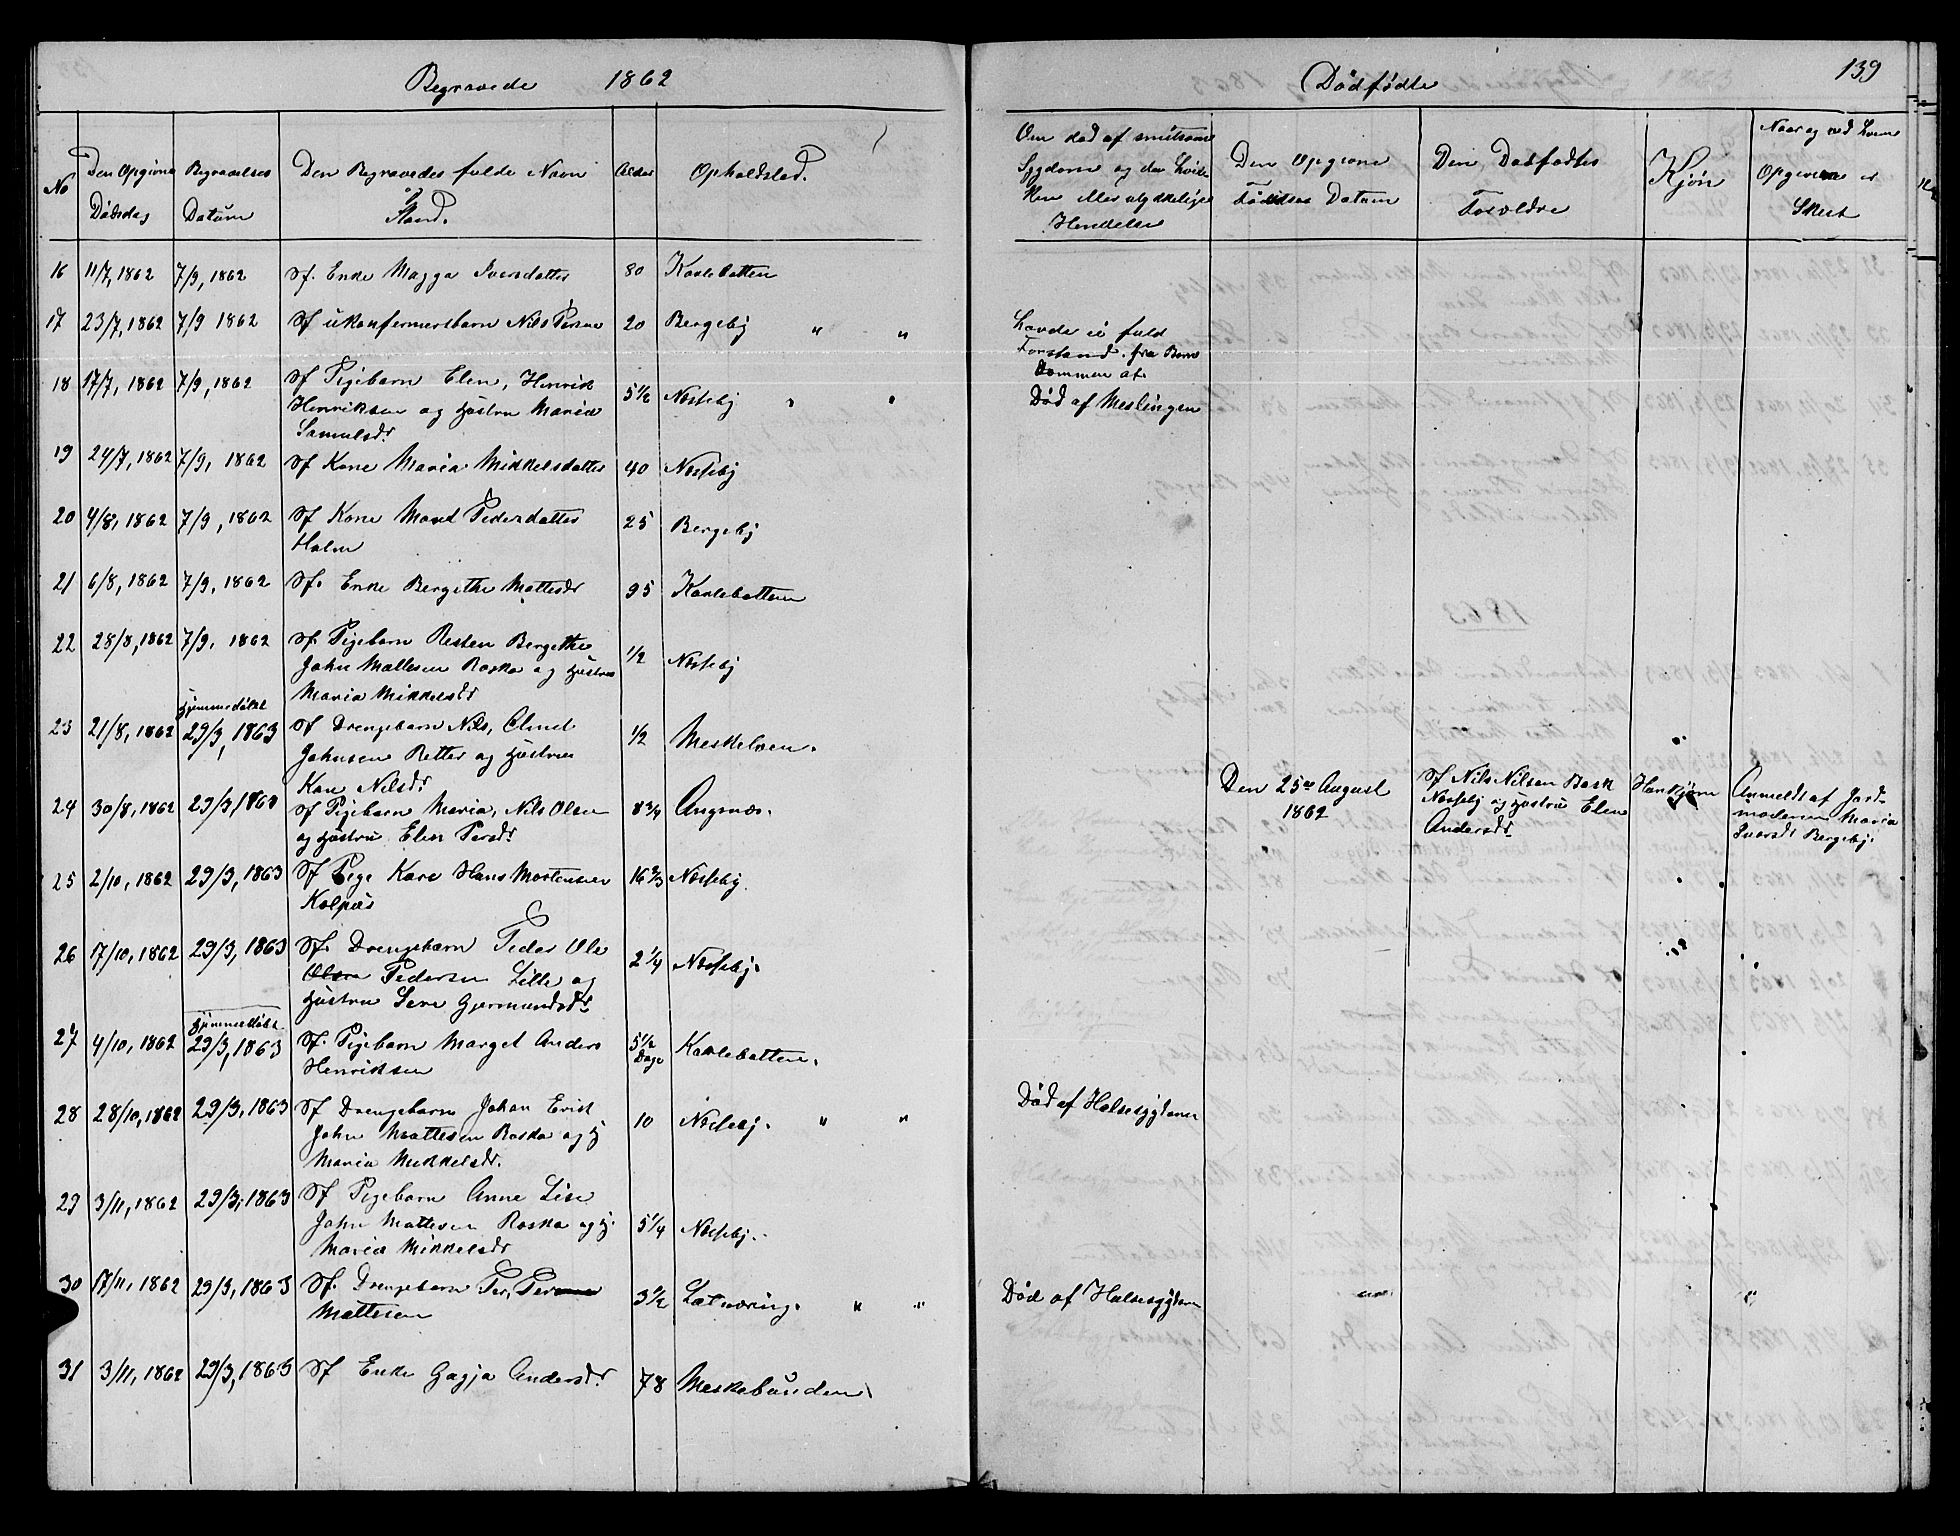 Begravede 1862
No
Den Opgivne Dødsdag
Begravelses Datum
Den Begravedes fulde Navn og Stand.
Alder
Opholdsted.
16 11/7, 1862 7/9, 1862 Sf. Enke Magga Iversdatter 80 Karlebotten
17 23/7, 1862 7/9 1862 Sf ukonfermertbarn Nils Persen 20 Bergeby " "
18 17/7, 1862 7/9, 1862 Sf Pigebarn Elen, Henrik 5 1/2 Nesseby " "
Henriksen og Hustru Maria
Samulsdr
19 24/7, 1862 7/9, 1862 Sf Kone Maria Mikkelsdatter 40 Nesseby
20 4/8, 1862 7/9, 1862 Sf Kone Maret Pedersdatter 25 Bergeby
Holm
21 6/8, 1862 7/9, 1862 Sf. Enke Bergithe Mattesdr 95 Karlebotten
22 28/8, 1862 7/9, 1862 Sf. Pigebarn Resten Bergethe 1/2 Nesseby
John Mattesen Raska og Hustru
Maria Mikkelsdr
Hjemmedøbt
23 21/8, 1862 29/3, 1863 Sf Drengebarn Nils, Amul 1/2 Meskelven.
Johnsen Retter og Hustru
Kari Nilsdr
24 30/8, 1862 29/3, 1863 Sf Pigebarn Maria, Nils Olsen 8 3/4 Angsnæs.
og Hustru Elen Persdr.
25 2/10, 1862 29/3, 1863 Sf Pige Kare Hans Mortensen 16 2/3 Nesseby.
Kalpus
26 17/10, 1862 29/3, 1863 Sf. Drengebarn Peder Ole 2 1/4 Nesseby.
Olsen Pedersen Lille og
Hustru Sere Gjermundsdr
Hjemmedøbt
27 4/10, 1862 29/3, 1863 Sf. Pigebarn Marget Anders 5 1/2 Dage Karlebotten.
Henriksen
28 28/10, 1862 29/3, 1863 Sf Drengebarn Johan Erik 10 Nesseby. " "
John Mattesen Raska og H
Maria Mikkelsdr.
29 3/11, 1862 29/3, 1863 Sf Pigebarn Anne Lise 5 1/4 Nesseby.
John Mattesen Raska og H.
Maria Mikkelsdr
30 17/11, 1862 29/3, 1863 Sf. Drengebarn Per, Persen 3 1/2 Latnæring. " "
Mattesen
31 3/11, 1862 29/3, 1863 Sf Enke Gagja Andersdr. 78 Meskebunden
Dødfødte
139
Om død af smitsom
Sygdom og den hvil
ken eller ulykkelige
Hendelse
Den Opgivne
Fødselses Datum
Den Dødfødtes
Forældre
Kjøn
Naar og ved hvem
Opgiven er
Skeet
Havde ei fuld
Forstand fra Barn
dommen af.
Død af Meslingen
1863
Den 25de August
1862
Sf Nils Nilsen Bask
Nesseby og Hustru Elen
Andersdr
Hankjøn
Anmeldt af Jord-
moderen Maria
Iversdr Bergeby.
Død af Halssygdom
Død af Halssygdom "